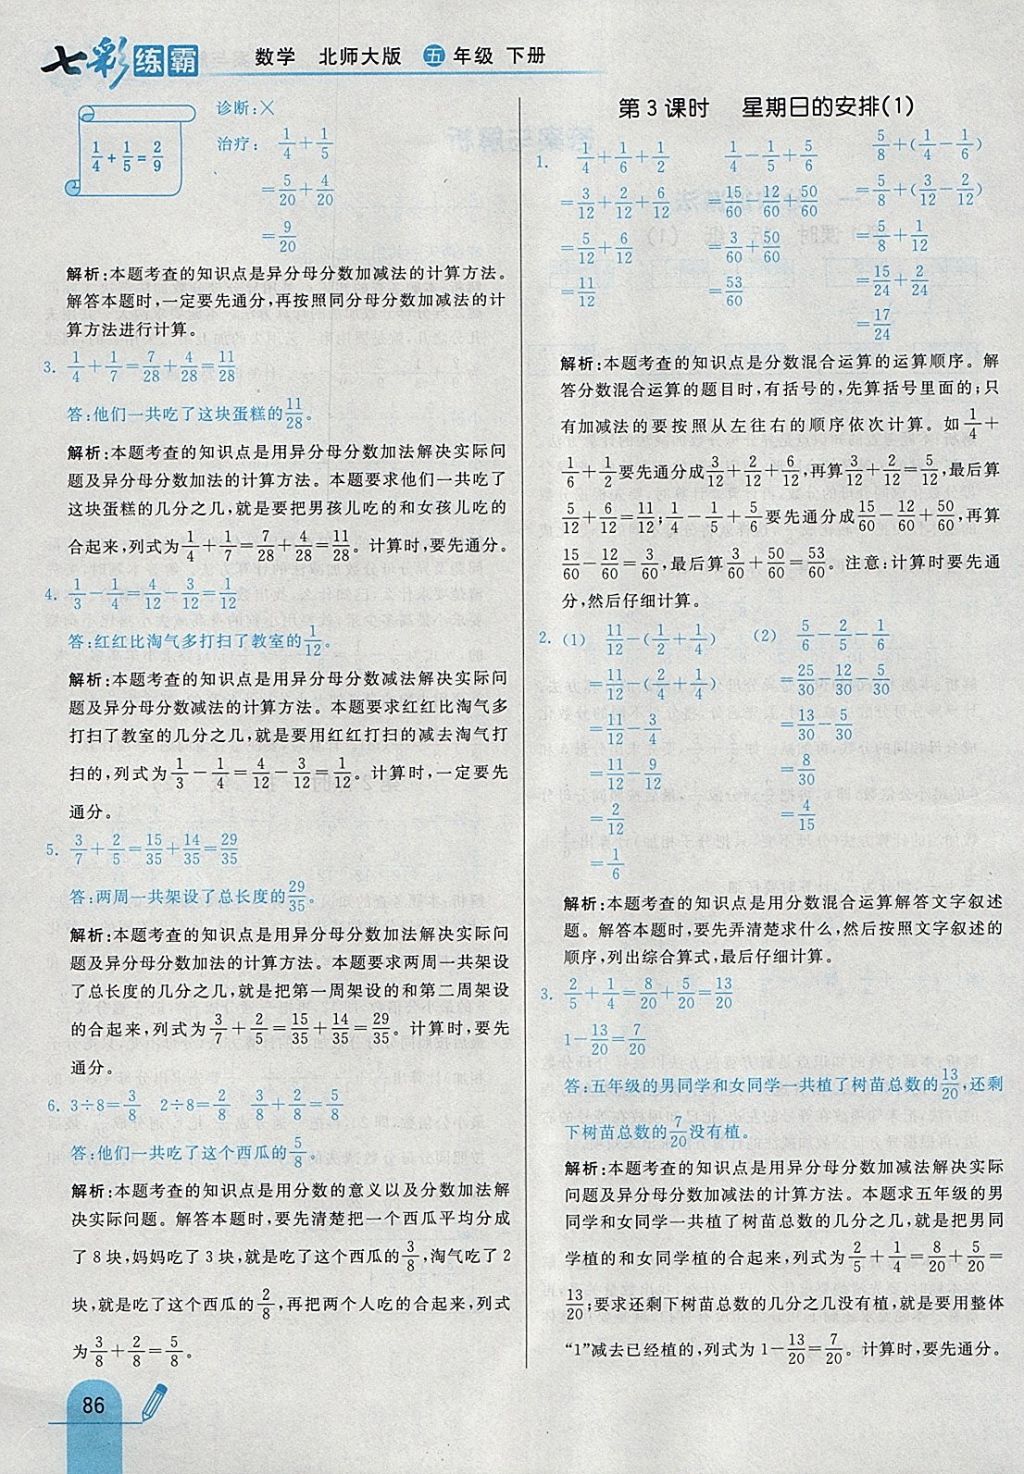 七彩练霸 数学 北师大版 五年级 下册
1/4+1/5=2/9
诊断:×
治疗: 1/4+1/5
=5/20+4/20
=9/20
解析:本题考查的知识点是异分母分数加减法的计算方法。
解答本题时,一定要先通分,再按照同分母分数加减法的计
算方法进行计算。
3. 1/4+1/7=7/28+4/28=11/28
答:他们一共吃了这块蛋糕的11/28。
解析:本题考查的知识点是用异分母分数加法解决实际问
题及异分母分数加法的计算方法。本题要求他们一共吃了
这块蛋糕的几分之几,就是要把男孩儿吃的和女孩儿吃的
合起来,列式为1/4+1/7=7/28+4/28=11/28。计算时,要先通分。
4. 1/3-1/4=4/12-3/12=1/12
答:红红比淘气多打扫了教室的1/12。
解析:本题考查的知识点是用异分母分数减法解决实际问
题及异分母分数减法的计算方法。本题要求红红比淘气多
打扫了教室的几分之几,就是要用红红打扫的减去淘气打
扫的,列式为1/3-1/4=4/12-3/12=1/12。计算时,一定要先
通分。
5. 3/7+2/5=15/35+14/35=29/35
答:两周一共架设了总长度的29/35。
解析:本题考查的知识点是用异分母分数加法解决实际问
题及异分母分数加法的计算方法。本题要求两周一共架设
了总长度的几分之几,就是要把第一周架设的和第二周架设
的合起来,列式为3/7+2/5=15/35+14/35=29/35。计算时,要先
通分。
6. 3÷8=3/8 2÷8=2/8 3/8+2/8=5/8
答:他们一共吃了这个西瓜的5/8。
解析:本题考查的知识点是用分数的意义以及分数加法解
决实际问题。解答本题时,要先清楚把一个西瓜平均分成
了8块,妈妈吃了3块,就是吃了这个西瓜的3/8,淘气吃了2
块,就是吃了这个西瓜的2/8,再把两个人吃的合起来,列式
为3/8+2/8=5/8。
86
第3课时 星期日的安排(1)
1. 1/4+1/6+1/2 1/4-1/5+5/6 5/8+(1/4-1/6)
=3/12+2/12+6/12 =15/60-12/60+50/60 =5/8+(3/12-2/12)
=5/12+6/12 =3/60+50/60 =5/8+1/12
=11/12 =53/60 =15/24+2/24
=17/24
解析:本题考查的知识点是分数混合运算的运算顺序。解
答分数混合运算的题目时,有括号的,先算括号里面的;只
有加减法的要按照从左往右的顺序依次计算。如1/4+
1/6+1/2要先通分成3/12+2/12+6/12,再算3/12+2/12=5/12,最后算
5/12+6/12=11/12;1/4-1/5+5/6要先通分成15/60-12/60+50/60,再算
15/60-12/60=3/60,最后算3/60+50/60=53/60。注意:计算时要先通
分,然后仔细计算。
2. (1) 11/12-(1/2+1/4) (2) 5/6-2/5-1/6
=11/12-(2/4+1/4) =25/30-12/30-5/30
=11/12-3/4 =13/30-5/30
=11/12-9/12 =8/30
=2/12 =4/15
=1/6
解析:本题考查的知识点是用分数混合运算解答文字叙述
题。解答本题时,要先弄清楚求什么,然后按照文字叙述的
顺序,列出综合算式,最后仔细计算。
3. 2/5+1/4=8/20+5/20=13/20
1-13/20=7/20
答:五年级的男同学和女同学一共植了树苗总数的13/20,还剩
下树苗总数的7/20没有植。
解析:本题考查的知识点是用异分母分数加减法解决实际
问题及异分母分数加减法的计算方法。本题求五年级的男
同学和女同学一共植了树苗总数的几分之几,就是把男同
学植的和女同学植的合起来,列式为2/5+1/4=8/20+5/20=
13/20;要求还剩下树苗总数的几分之几没有植,就是要用整体
“1”减去已经植的,列式为1-13/20=7/20。计算时,要先通分。